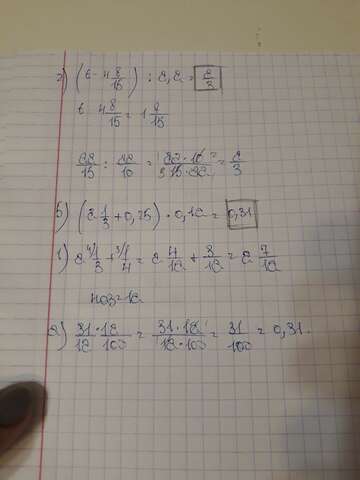 г) (6 - 4 8/15) : 2,2 = 2/3
6 - 4 8/15 = 1 7/15
22/15 : 22/10 = 22·10/15·22 = 2/3
б) (2 1/3 + 0,25) · 0,12 = 0,31
1) 2 4/ 1/3 + 3/ 1/4 = 2 4/12 + 3/12 = 2 7/12
НОЗ=12
2) 31/12 · 12/100 = 31·12/12·100 = 31/100 = 0,31.